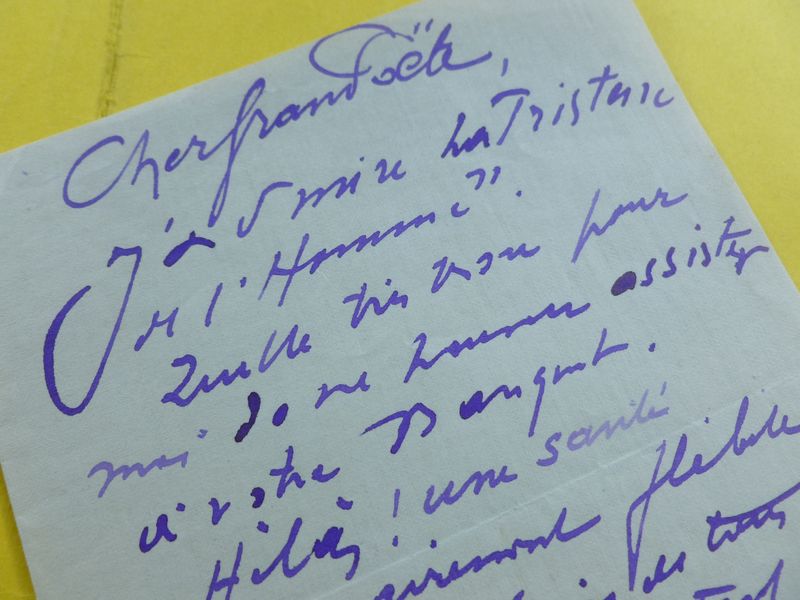 Cher grand Poëte,
J'admire "La Tristesse
de l'Homme".
Quelle tristesse pour
moi de ne pouvoir assister
à votre Banquet.
Hélas! une santé
flébile
de tous